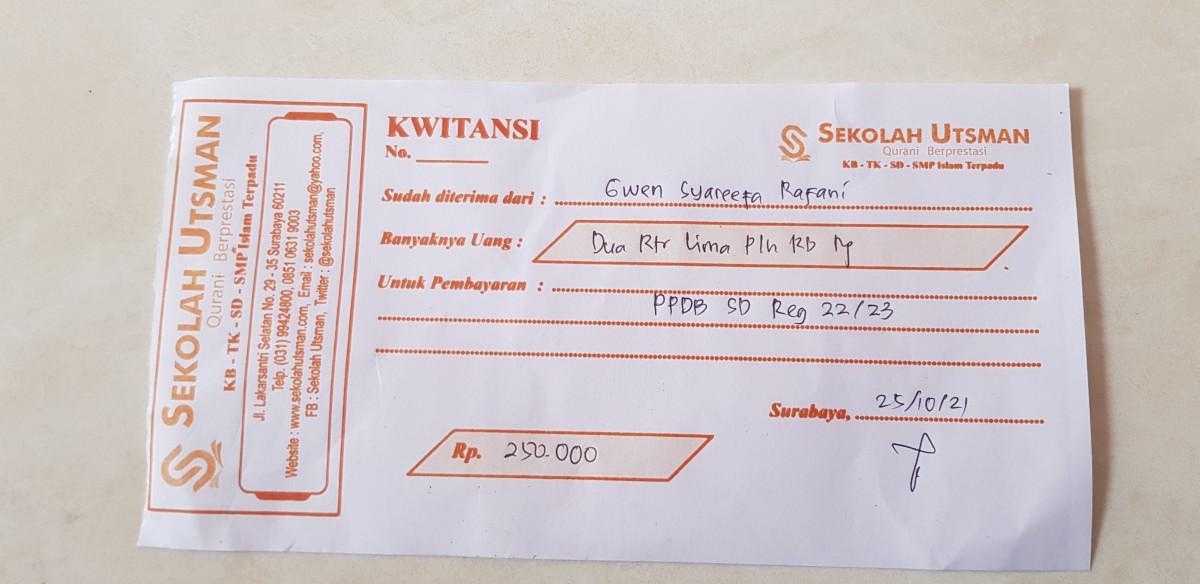 SEKOLAH UTSMAN
Qurani Berprestasi
KB - TK - SD - SMP Islam Terpadu
Jl. Lakarsantri Selatan No. 29 - 35 Surabaya 60211
Telp. (031) 99424800, 0851 0631 9003
Website : www.sekolahutsman.com, Email : sekolahutsman@yahoo.com,
FB : Sekolah Utsman, Twitter : @sekolahutsman
KWITANSI
No.
SEKOLAH UTSMAN
Qurani Berprestasi
KB - TK - SD - SMP Islam Terpadu
Sudah diterima dari : Gwen Syareefa Rafani
Banyaknya Uang : Dua Rtr Lima Plh Rb Rp
Untuk Pembayaran :
PPDB SD Reg 22/23
Surabaya, 25/10/21
Rp. 250.000